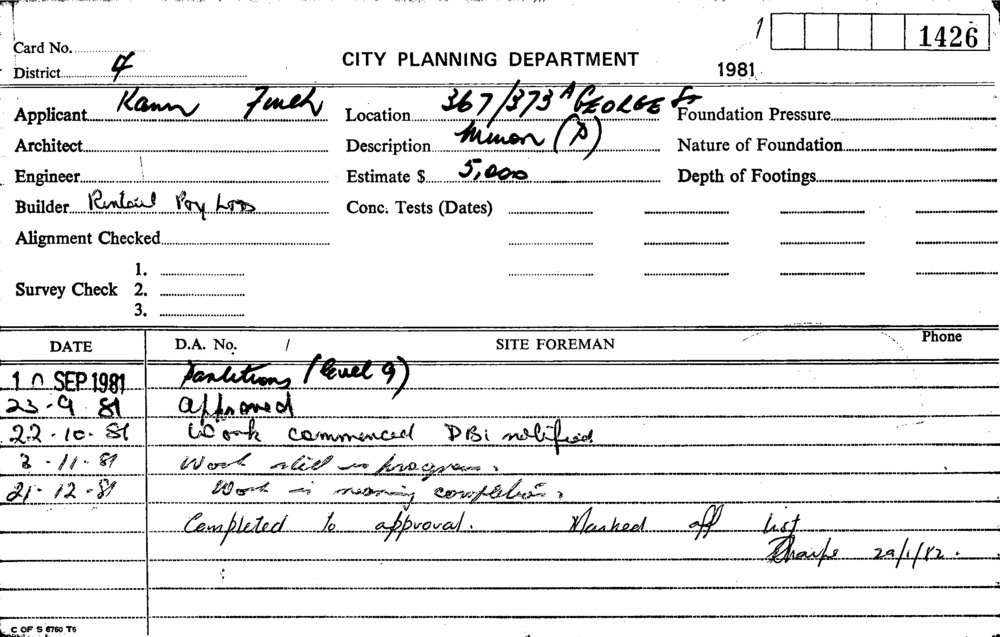 1 1426
Card No.
District 4
CITY PLANNING DEPARTMENT
1981
Applicant Kann Finch
Location 367/373A GEORGE St
Foundation Pressure
Architect
Description Minor (P)
Nature of Foundation
Engineer
Estimate $ 5,000
Depth of Footings
Builder Pty
Conc. Tests (Dates)
Alignment Checked
1.
Survey Check 2.
3.
DATE D.A. No. / SITE FOREMAN Phone
10 SEP 1981 Partitions (level 9)
23-9 81 Approved
22-10-81 Work commenced DBI notified
3-11-81 Work still in progress.
21-12-81 Work is nearing completion.
Completed to approval. Marked off list
Sharpe 29/1/82.
C OF S 6760 T6